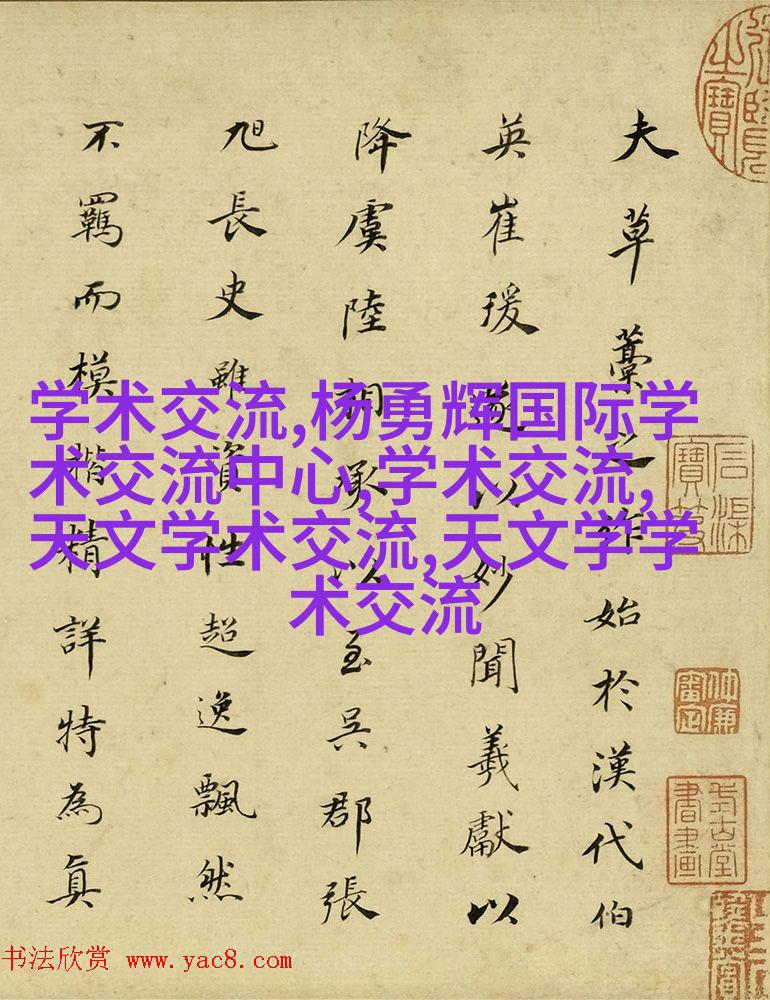 夫草藁之作始於漢代伯
英崔瑗遂以妙聞羲獻以
降虞陸相承以至吳郡張
旭長史雖資性超逸飄然
不羈而模楷精詳特為真
学术交流,杨勇辉国际学
术交流中心,学术交流,
天文学术交流,天文学学
术交流
石渠
寶笈
书法欣赏 www.yac8.com